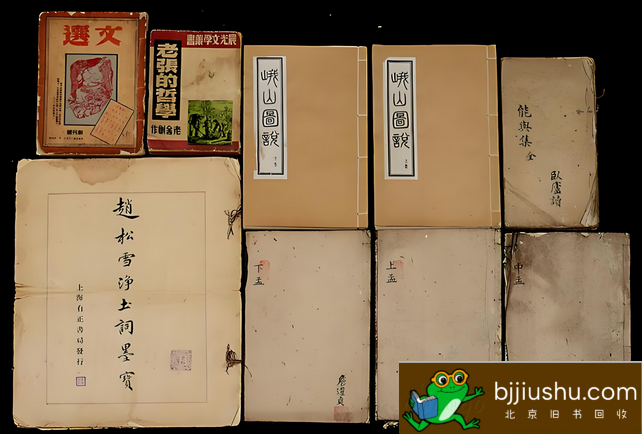 文選
創刊號
晨光文學叢書
老張的哲學
老舍創作
峨山圖說
峨山圖說
能與集 全
臥廬讀
趙松雪淨土詞墨寶
上海有正書局發行
下孟
詹道真
上孟
中孟
bjjiushu.com
北京旧书回收